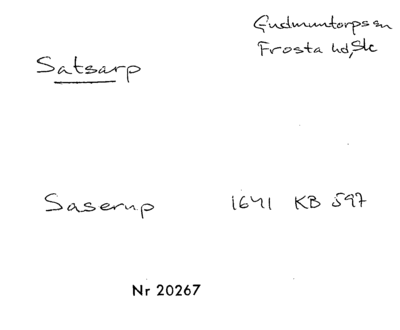 Gudmuntorps sn
Frosta hd, Sk
Satsarp
Saserup 1641 KB 597
Nr 20267